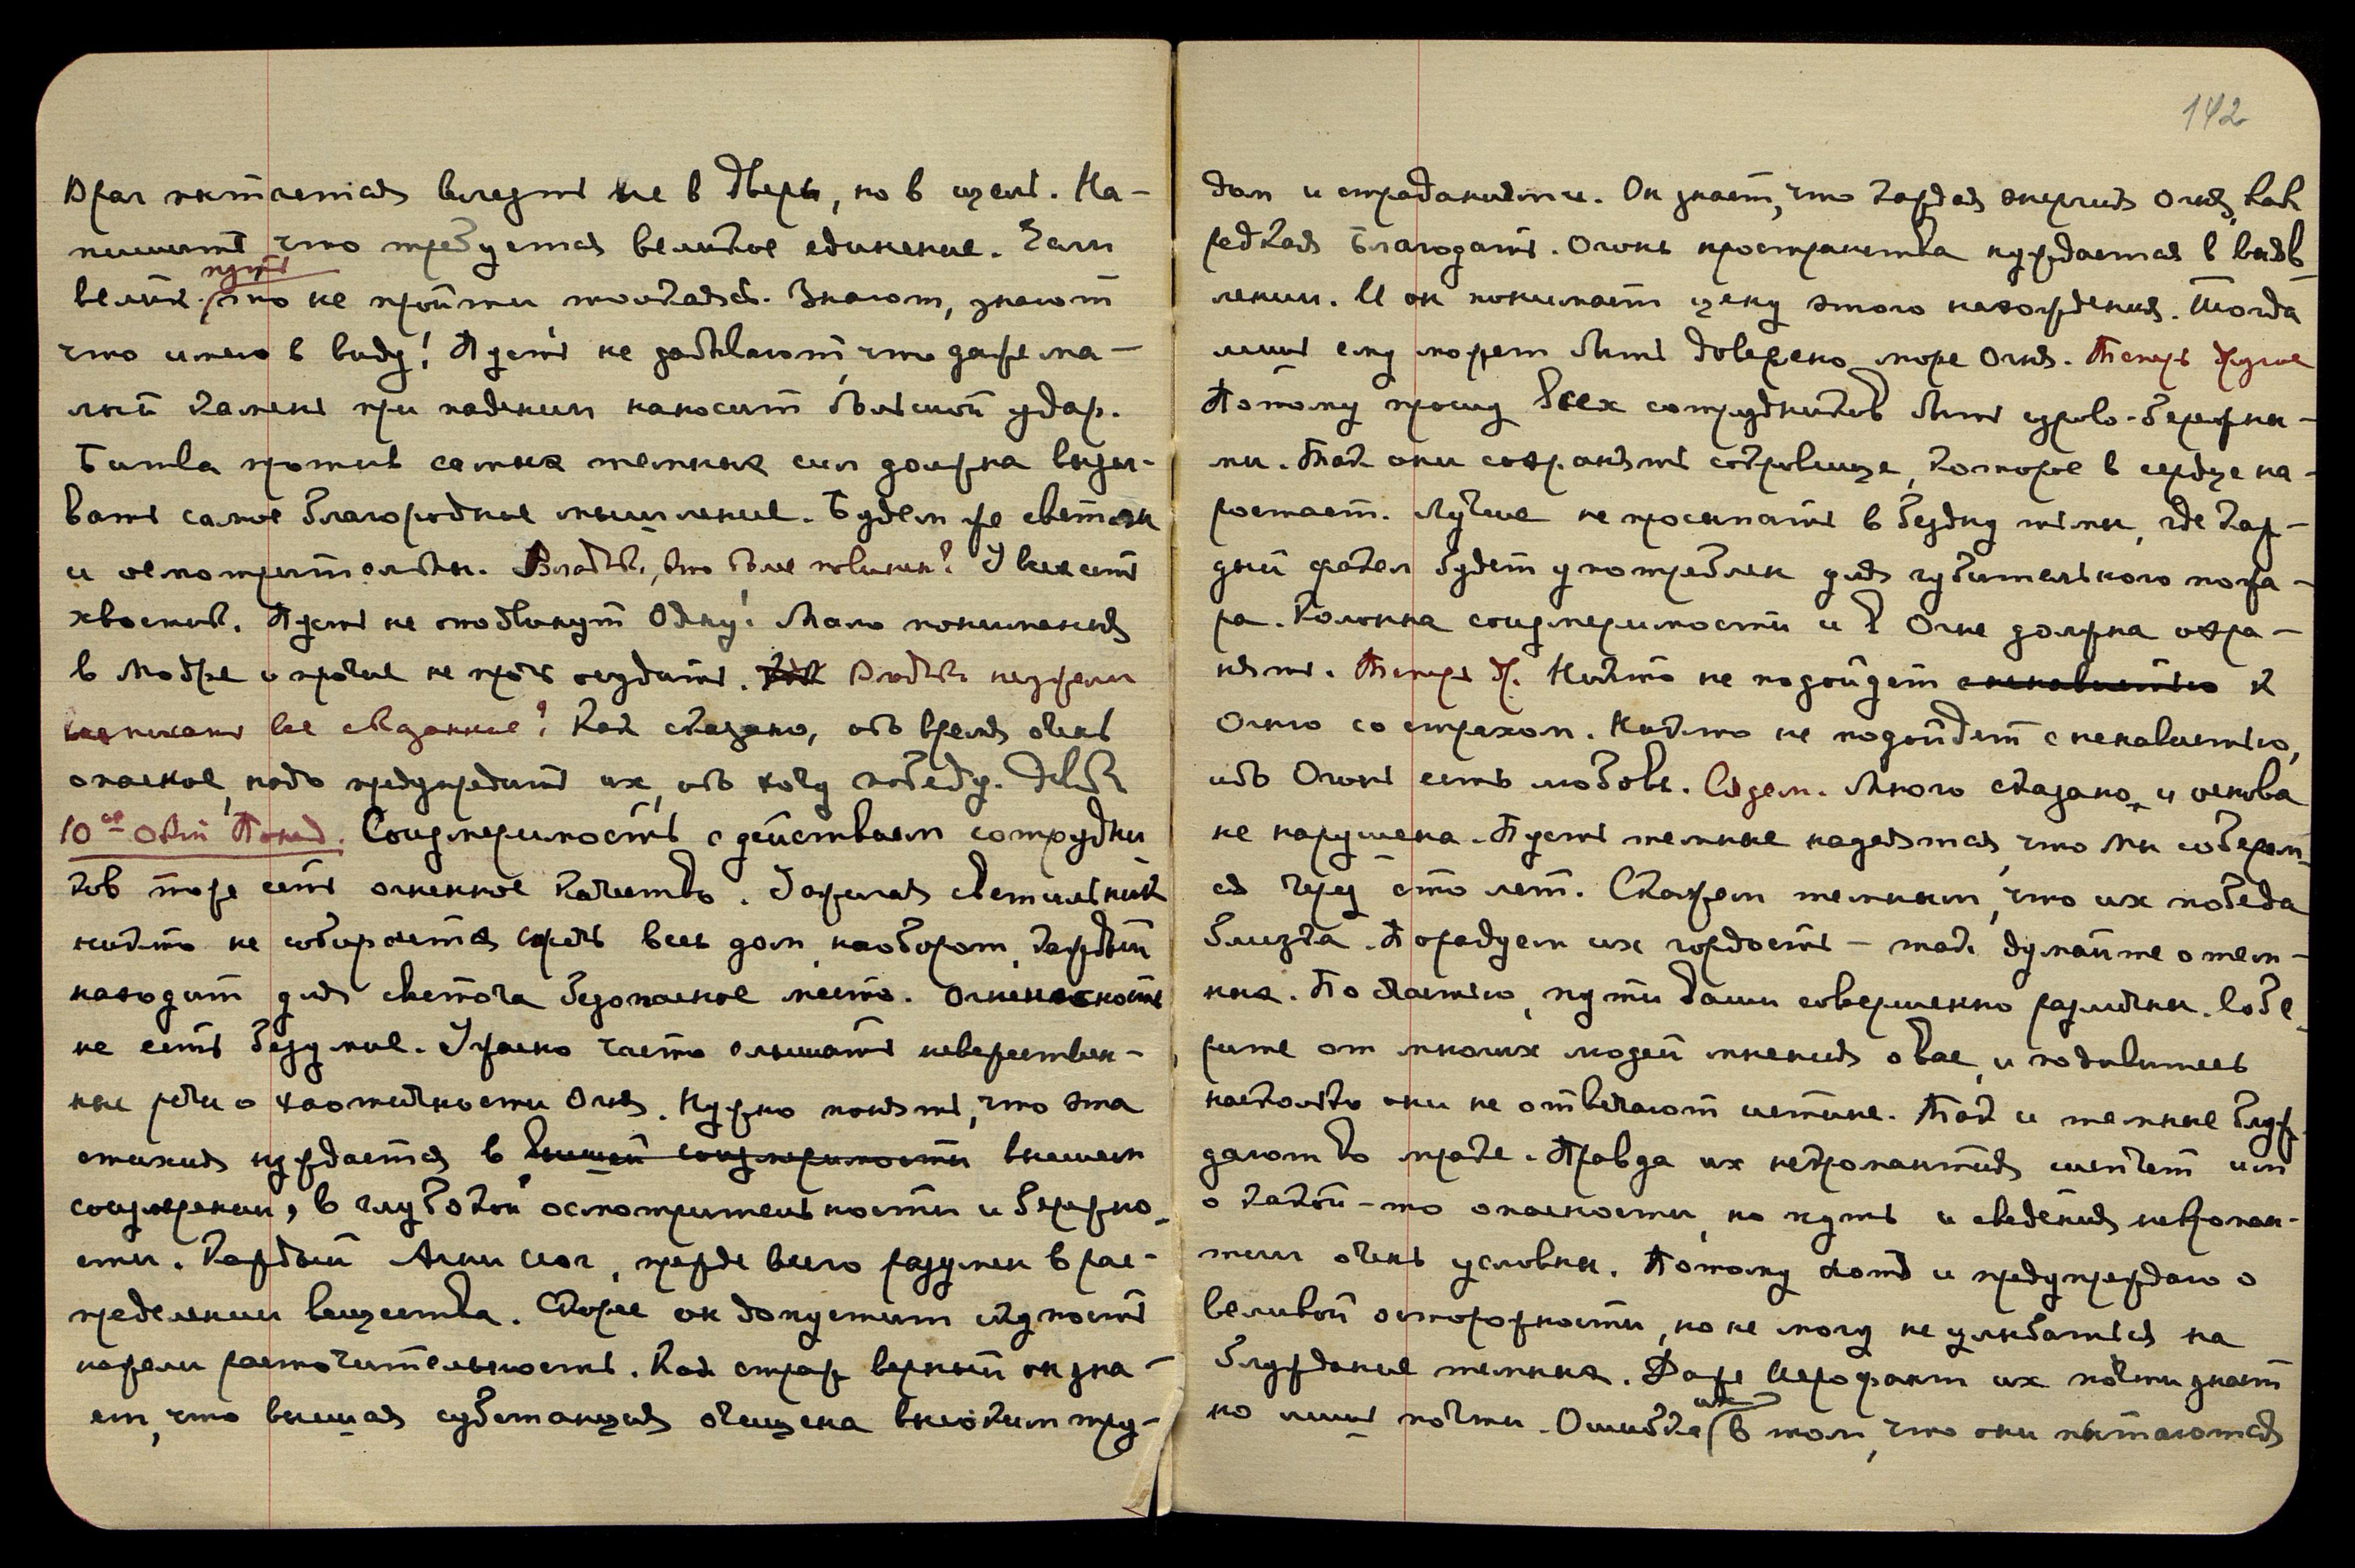 Враг пытается влезть не в дверь, но в щель. На-
пишите что требуется великое единение. Если
путь
велик, то не пройти толкаясь. Знают, знают
что имею в виду! Пусть не забывают, что даже ма-
лый камень при падении наносит больший удар.
Битва против самых темных сил должна вызы-
вать самое благородное мышление. Будем же светлы
и осмотрительны. Владыка, кто более повинен? У всех есть
хвостик. Пусть не отодвинут Одну! Мало понимания
в Модре и прочие не прочь осудить. Владыка нужно ли
писать все сказанное? Как сказано, ибо время очень
опасное, надо предупредить их, ибо хочу победу.
10ое Окт. Понед. Соизмеримость с действием сотрудни
ков тоже есть огненное качество. Зажигая светильник
никто не собирается сжечь весь дом, наоборот, каждый
находит для светоча безопасное место. Огненность
не есть безумие. Ужасно часто слышать невежествен-
ные речи о хаотичности Огня. Нужно понять, что эта
стихия нуждается в высшей соизмеримости высшем
соизмерении, в глубокой осмотрительности и бережно-
сти. Каждый Агни Йог, прежде всего разумен в рас-
пределении вещества. Скорее он допустит скупость
нежели расточительность. Как страж верный он зна-
ет, что высшая субстанция очищена высоким тру-
142
дом и страданиями. Он знает, что каждая энергия огня, как
редкая благодать. Огонь пространства нуждается в выяв
лении. И он понимает цену этого нахождения. Тогда
лишь ему может быть доверено море Огня. Теперь другое
Потому прошу всех сотрудников быть сурово-бережны-
ми. Так они сохранят сокровище, которое в сердце на-
ростает. Лучше не просыпать в бездну тьмы, где каж-
дый факел будет употреблен для губительного пожа-
ра. Колонна соизмеримости и в Огне должна охра-
нять. Теперь д. Никто не подойдет с ненавистью к
Огню со страхом. Никто не подойдет с ненавистью,
ибо Огонь есть любовь. Сядем. Много сказано, и основа
не нарушена. Пусть темные надеятся, что Мы соберем-
ся через сто лет. Скажем темным, что их победа
близка. Порадуем их гордость — так думайте о тем-
ных. По счастью, пути Ваши совершенно различны. Собе
рите от многих людей мнения о вас, и подивитесь
насколько они не отвечают истине. Так и темные блуж
дают во мраке. Правда их некромантия шепчет им
о какой-то опасности, но путь и сведения некроман-
тии очень условны. Потому хотя и предупреждаю о
великой осторожности, но не могу не улыбаться на
блуждание темных. Даже Иерофант их почти знает
их
но лишь почти. Ошибка в том, что они пытаются